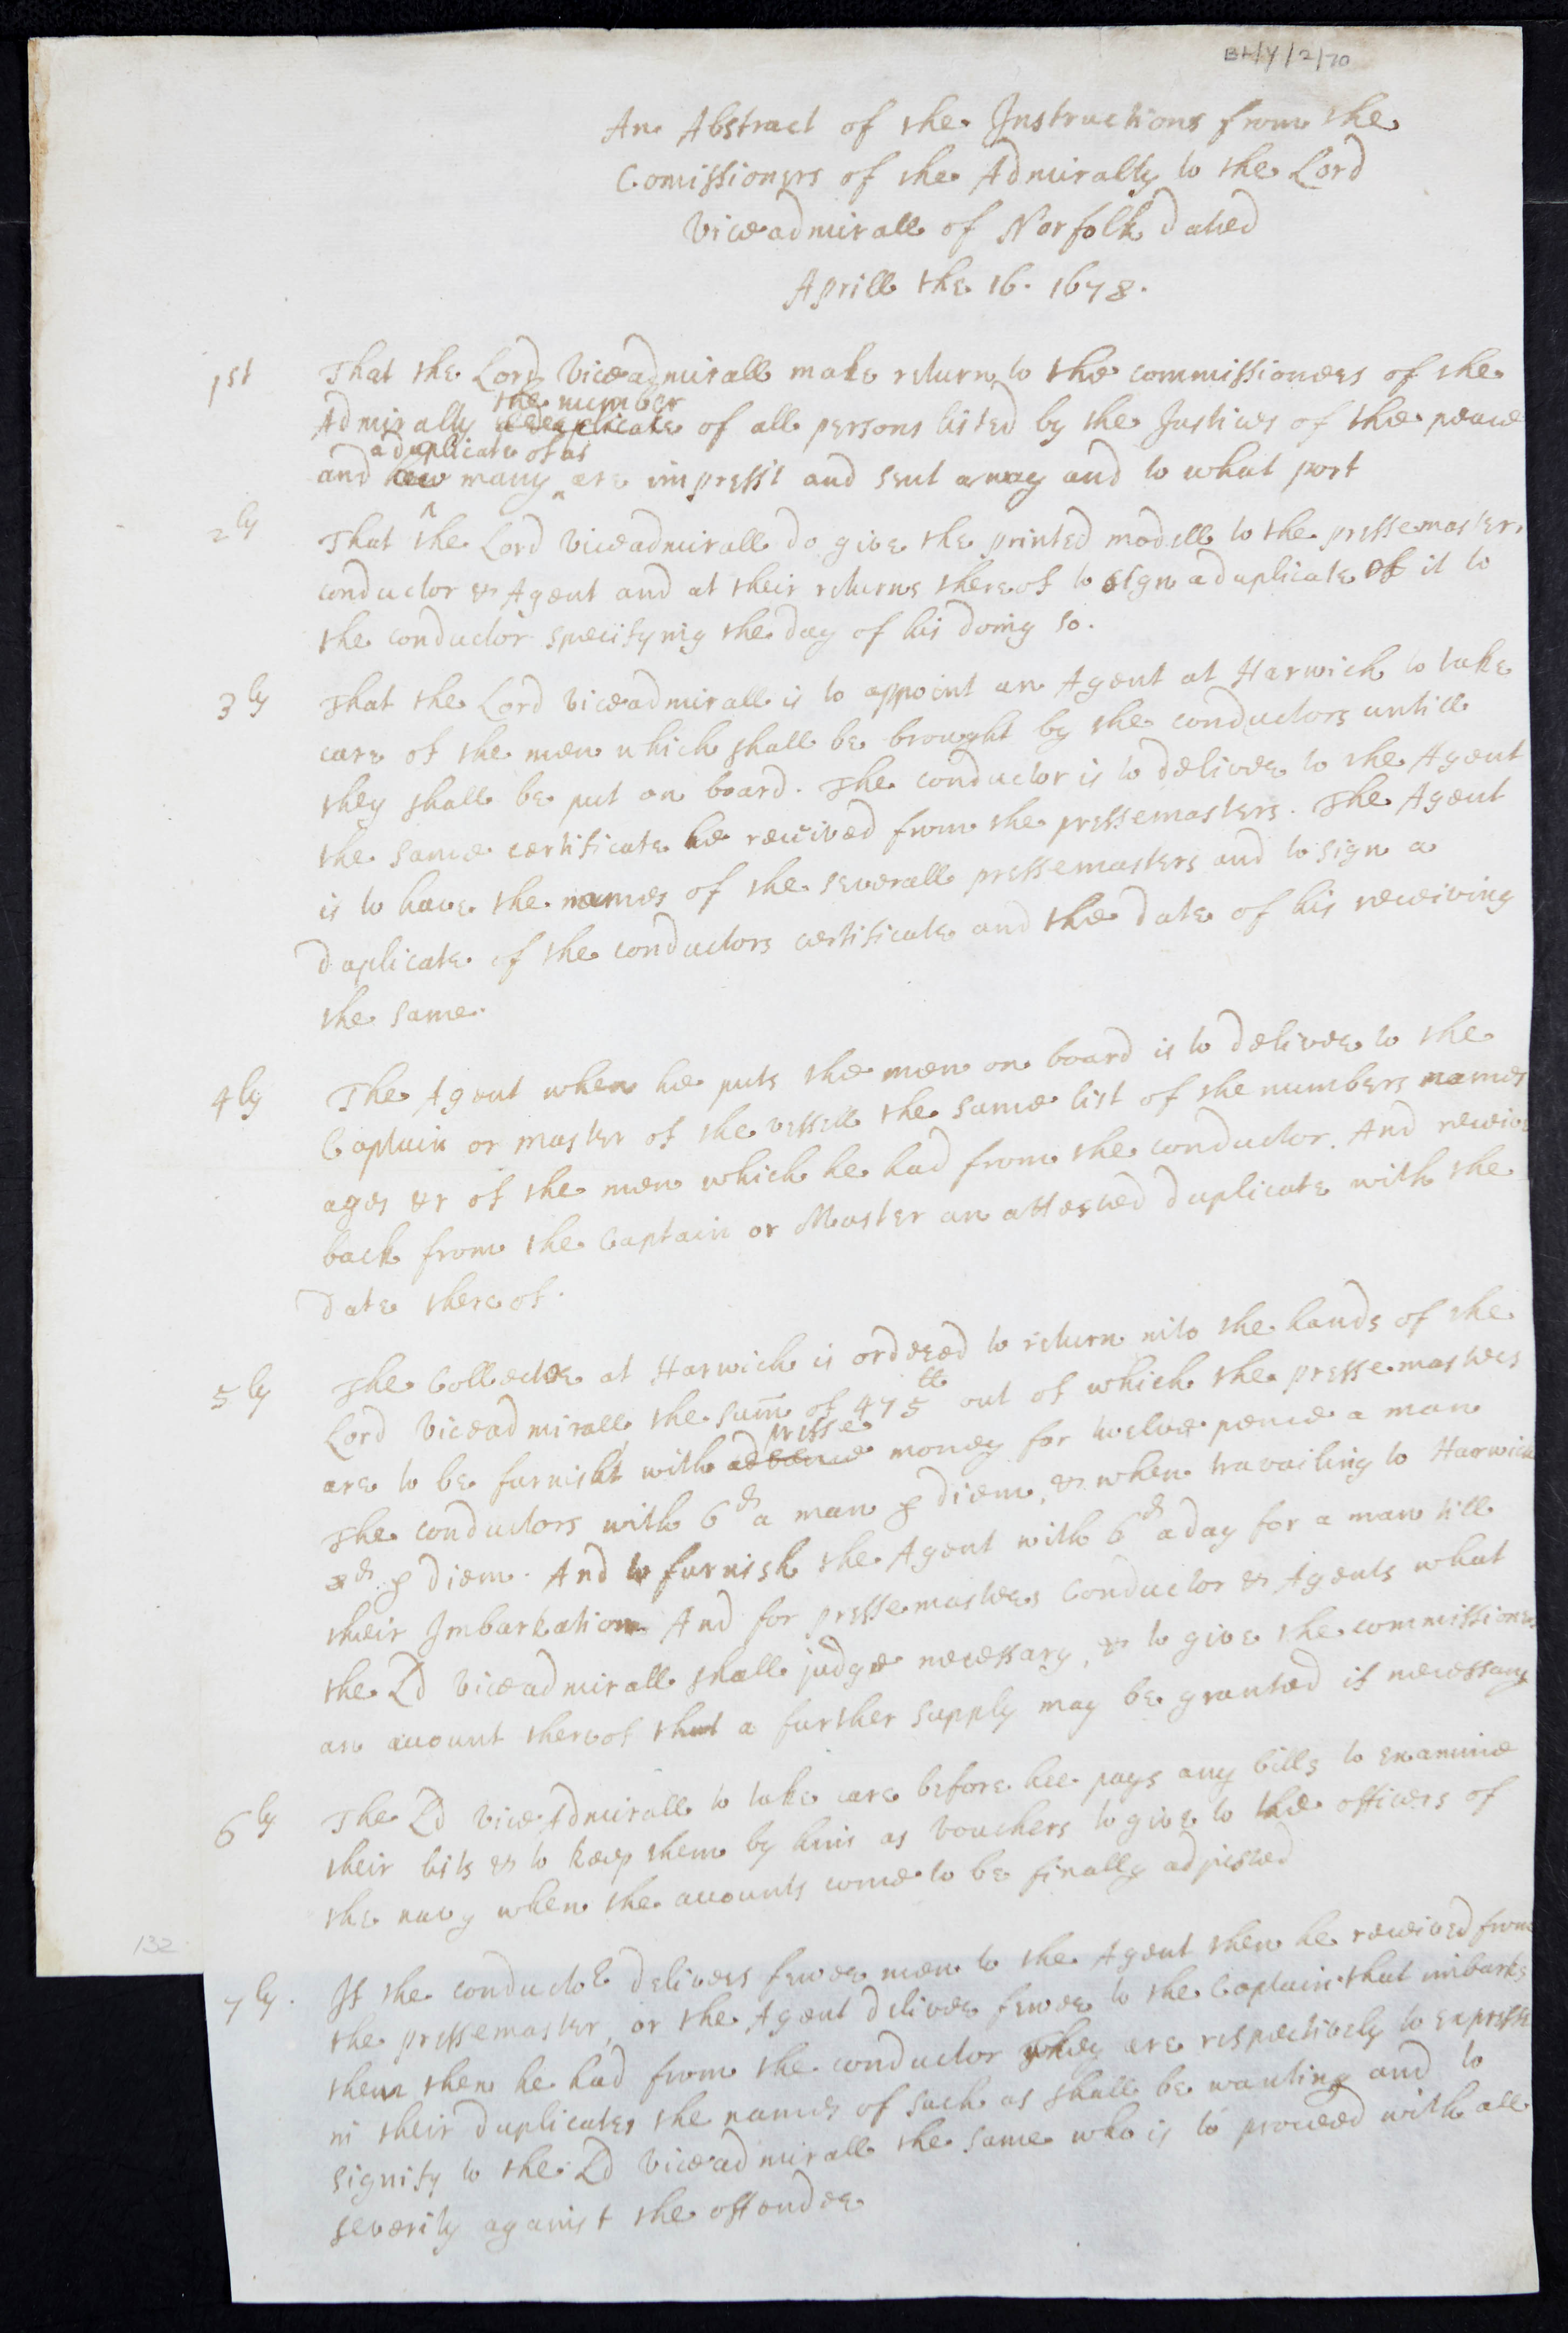 BL/Y/2/70
An Abstract of the Instructions from the
Comissioners of the Admiralty to the Lord
Viceadmirall of Norfolk dated
Aprill the 16. 1678.
1st That the Lord Viceadmirall make return to the commissioners of the
the number
Admiralty a duplicate of all persons listed by the Justices of the peace
a duplicate of as
and how many are imprest and sent away and to what port
2ly That the Lord Viceadmirall do give the printed modell to the pressemaster,
conductor & Agent and at their returns thereof to sign a duplicate of it to
the conductor specifying the day of his doing so.
3ly That the Lord Viceadmirall is to appoint an Agent at Harwich to take
care of the men which shall be brought by the conductors untill
they shall be put on board. The conductor is to deliver to the Agent
the same certificate he received from the pressemasters. The Agent
is to have the names of the severall pressemasters and to sign a
duplicate of the conductors certificate and the date of his receiving
the same.
4ly The Agent when he puts the men on board is to deliver to the
Captain or master of the vessell the same list of the numbers names
ages &c of the men which he had from the conductor. And receive
back from the Captain or Master an attested duplicate with the
date thereof.
5ly The Collector at Harwich is ordered to return into the hands of the
Lord Viceadmirall the sum̅ of 475ll out of which the pressemasters
presse
are to be furnisht with advance money for twelve pence a man
The conductors with 6d a man p diem, & when travailing to Harwich
8d p diem. And to furnish the Agent with 6d a day for a man till
their Imbarkation And for pressemasters Conductor & Agents what
the Ld Viceadmirall shall judge necessary, & to give the commissioners
an acount thereof that a further supply may be granted if necessary
6ly The Ld Vice Admirall to take care before hee pays any bills to examine
their lists & to keep them by him as vouchers to give to the officers of
the navy when the acounts come to be finally adjusted
7ly. If the conductor delivers fewer men to the Agent then he received from
the pressemaster, or the Agent deliver fewer to the Captain that imbarks
them then he had from the conductor they are respectively to expresse
in their duplicates the names of such as shall be wanting and to
signify to the Ld Viceadmirall the same who is to proceed with all
severity against the offender
132